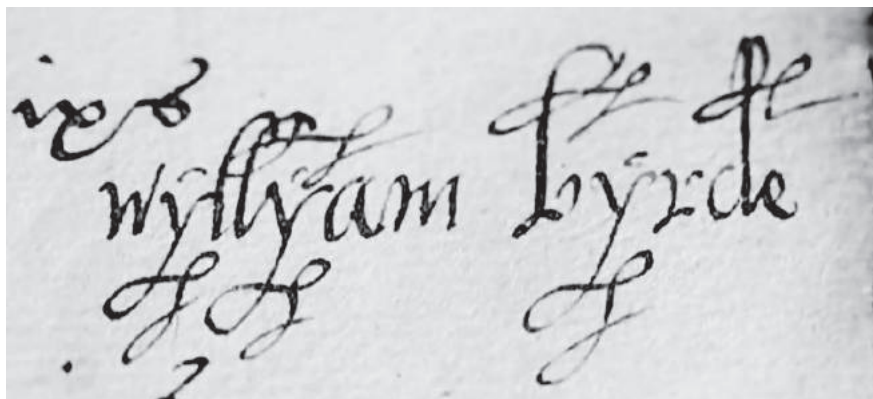 ixs
wyllyam byrde